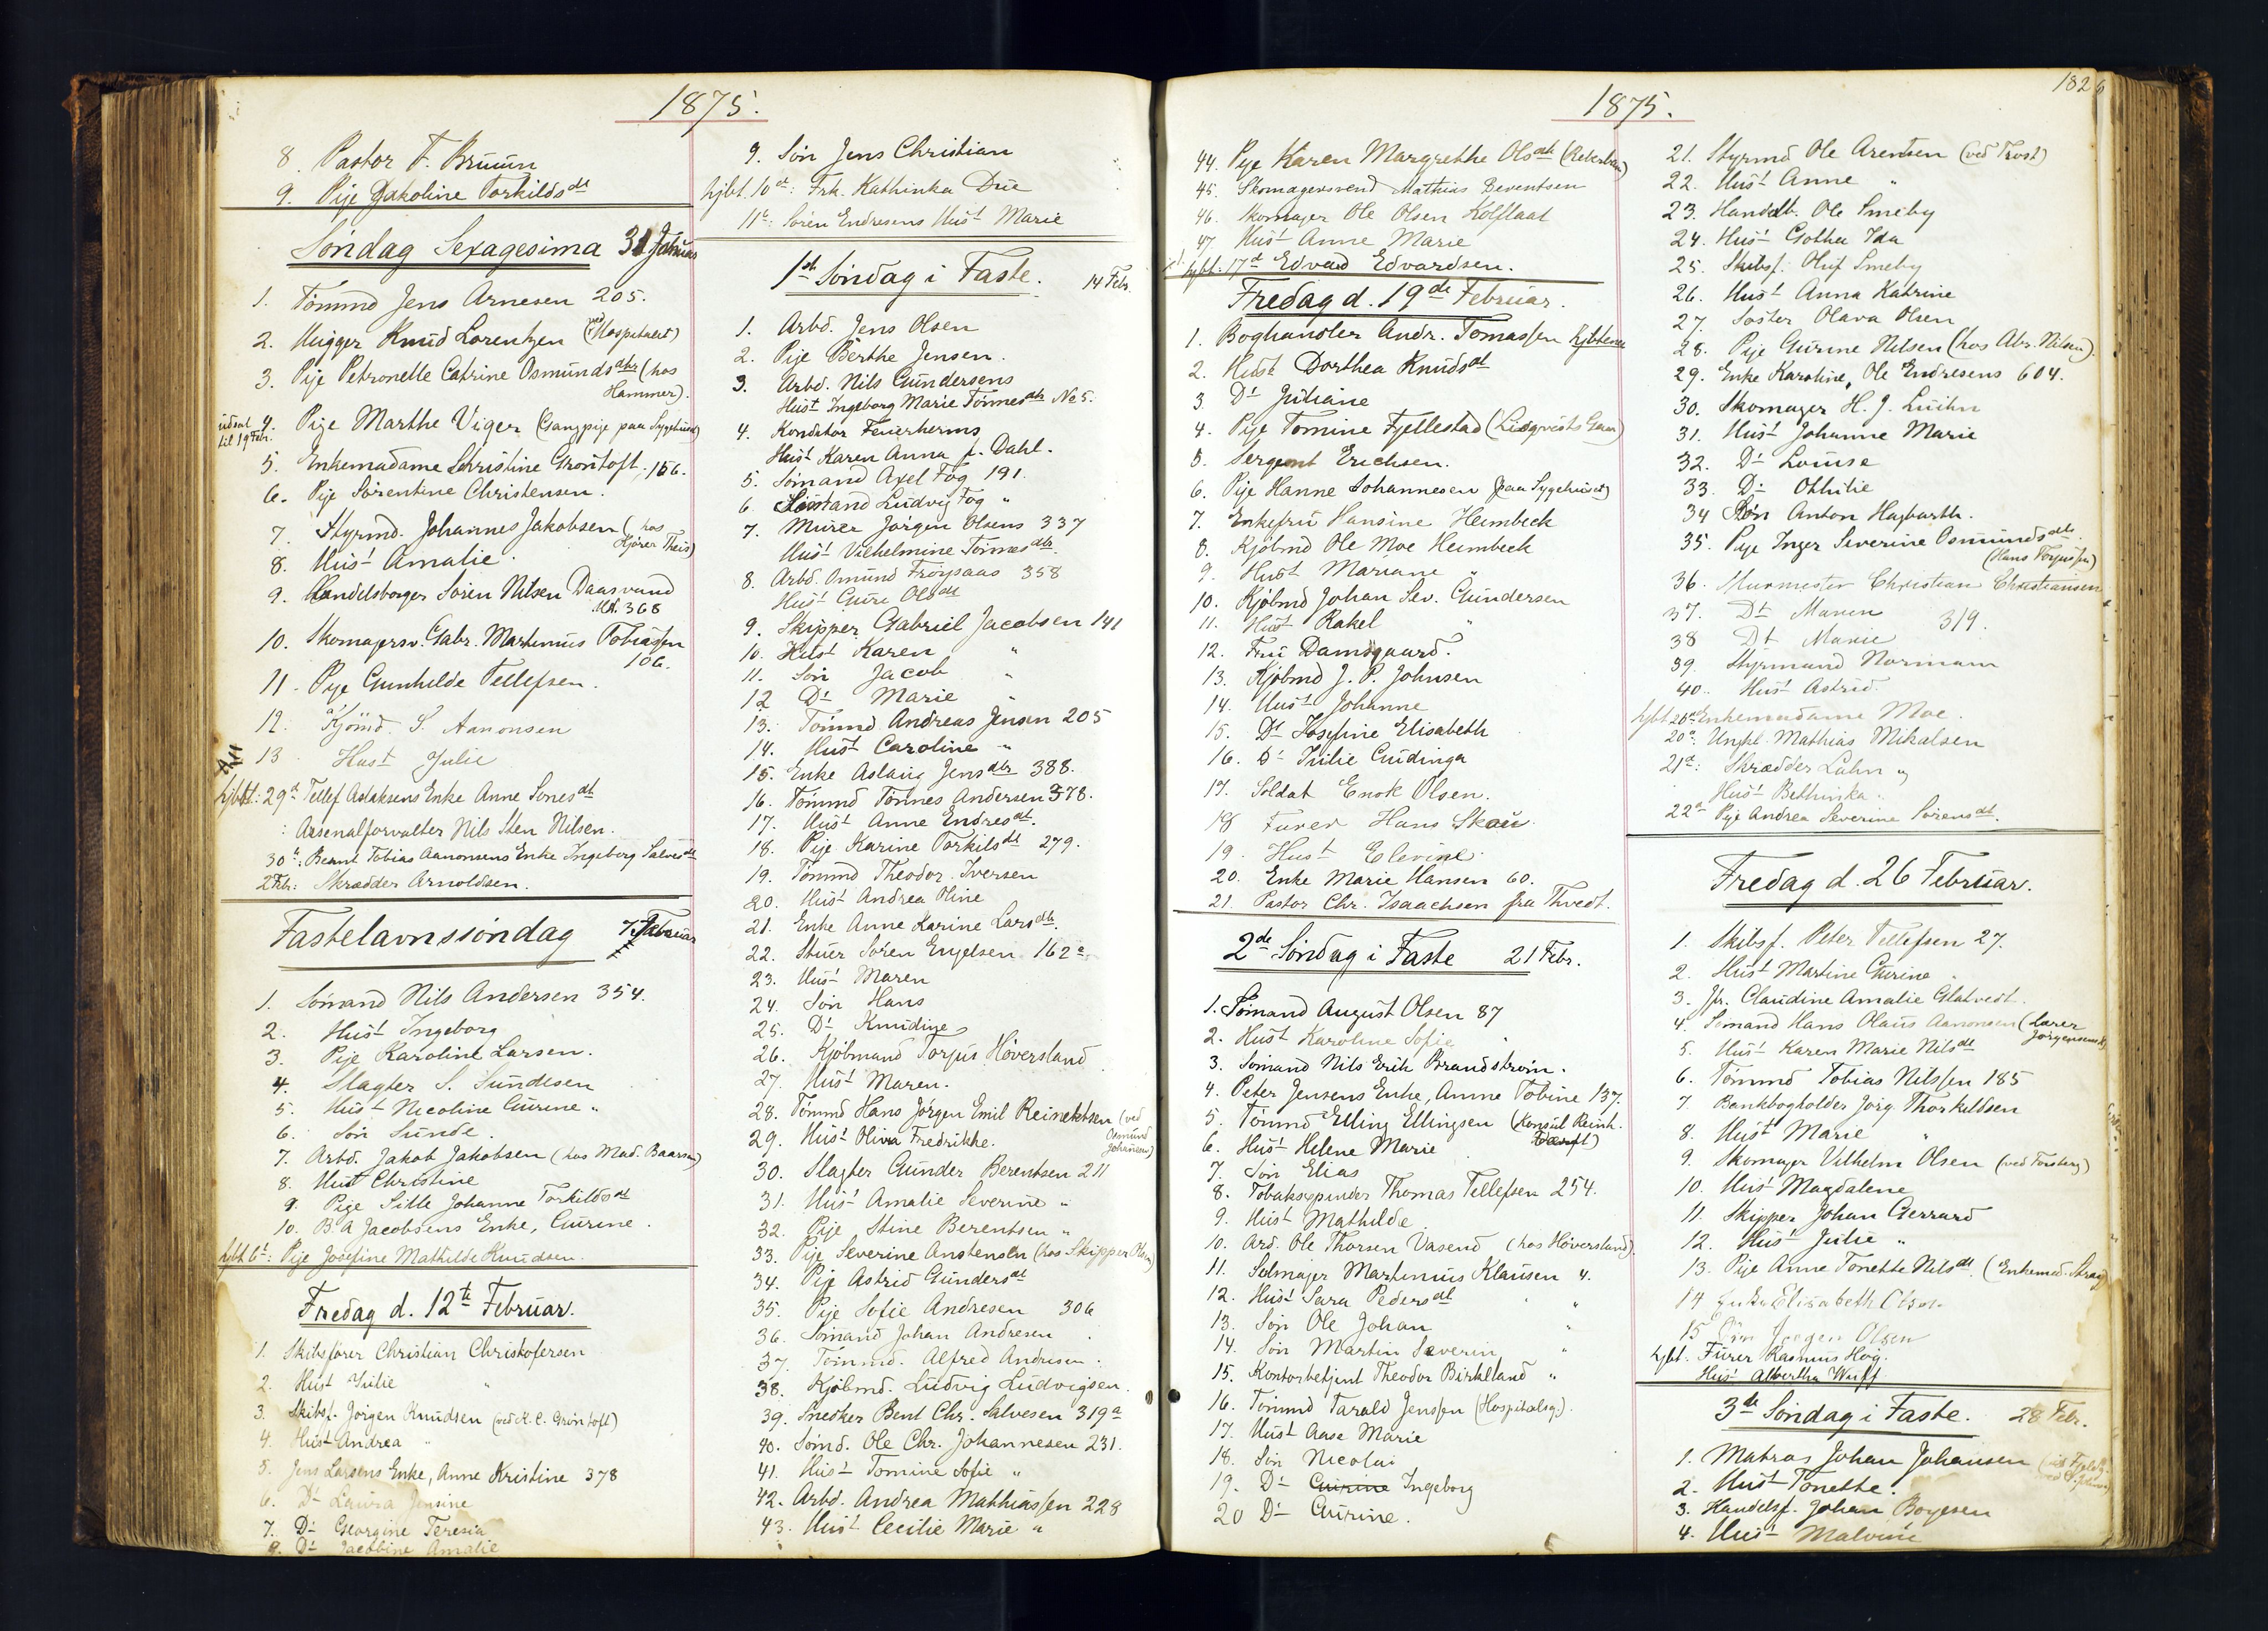 1875.
8. Pastor F. Bruun
9. Pije Jakoline Torkildsdt
Søndag Sexagesima 31 Januar
1. Tømmd Jens Arnesen 205.
2. Hugger Knud Lorentzen (ved Hospitalet)
3. Pije Petronelle Catrine Osmundsdtr (hos
Hammer).
udsat til 19 Febr. 4. Pige Marthe Viger (Gangpije paa Sygehuset)
5. Enkemadame Christine Grøntoft. 156.
6. Pije Sørentine Christensen.
7. Styrmd. Johannes Jakobsen (hos
8. Hust Amalie.
9. Handelsborger Søren Nilsen Daasvand
Ut. 368
10. Skomagersv. Gabr. Martinus Tobiassen
106.
11. Pije Gunhilde Tellefsen.
12. Kjømd. S. Aanonsen
13 Hust Julie
hjbt: 29d Tellef Aslaksens Enke Anne Sonesdt
: Arsenalforvalter Nils Sten Nilsen.
30d: Beamt Tobias Aanonsens Enke Ingeborg Salvesdt
2 Febr: Skrædder Arnoldsen.
Fastelavnssøndag 7 Februar
1. Sømand Nils Andersen 354.
2. Hust Ingeborg
3. Pije Karoline Larsen.
4. Slagter S. Sundesen
5. Hust Nicoline Gurine "
6. Søn Sunde.
7. Arbd. Jakob Jakobsen (hos Mad. Baarsen)
8. Hust Christine
9. Pige Sille Johanne Torkildsdt
10. B. A Jacobsens Enke, Gurine.
hjbt 6t: Pije Josefine Mathilde Knudsen.
Fredag d. 12te Februar.
1. Skibsfører Christian Christofersen
2. Hust Julie "
3. Skibsf. Jörgen Knudsen (ved K. C. Grøntoft)
4. Hust Andrea "
5. Jens Larsens Enke, Anne Kristine 378
6. Dt Laura Jensine
7. Dt Georgine Teresia
9. Dt Jacobine Amalie
9. Søn Jens Christian
hjbt. 10d: Frk. Kathinka Due
11t: Søren Endresens Hust Marie
1ste Søndag i Faste. 14 Febr.
1. Arbd. Jens Olsen
2. Pije Berthe Jensen.
3. Arbd. Nils Gundersens
Hust Ingeborg Marie Tønnesdtr No 5.
4. Konditor Feuerherms
Hust Karen Anna f. Dahl.
5. Sømand Axel Fog 191.
6. Sømand Ludvig Fog "
7. Murer Jørgen Olsens 337
Hust Vilhelmine Tønnesdtr.
8. Arbd. Omund Frøysaas 358
Hust Guri Olsdt
9. Skipper Gabriel Jacobsen 141
10. Hust Karen "
11. Søn Jacob "
12 Dt Marie "
13. Tømmd Andreas Jensen 205
14. Hust Caroline "
15. Enke Aslaug Jensdtr 388.
16. Tømmd Tönnes Andersen 378.
17. Hust Anne Endresdt.
18. Pije Karine Torkilsdt 279.
19. Tømmd Theodor Iversen
20. Hust Andrea Oline
21. Enke Anne Karine Larsdtr.
22. Stuer Søren Engelsen 162a
23. Hust Maren
24. Søn Hans
25. Dt Knudine
26. Kjøbmand Torjus Høversland
27. Hust Maren.
28. Tømmd Hans Jørgen Emil Reinertsen (ved
Osmund
29. Hust Olivia Fredrikke.
30. Slagter Gunder Berentsen 211
31. Hust Amalie Severine "
32. Pije Stine Berentsen "
33. Pije Severine Anstensen (hos Skipper Olsen)
34. Pije Astrid Gundersdt
35. Pije Sofie Andresen 306
36. Sømand Johan Andresen
37. Tømmd. Alfred Andresen.
38. Kjøbmd. Ludvig Ludvigsen.
39. Snedker Bent Chr. Salvesen 319a
40. Sømd. Ole Chr. Johannesen 231.
41. Hust Tomine Sofie "
42. Arbd. Andrea Mathiassen 228
43. Hust Cecilie Marie "
1875.
182
44. Pije Karen Margrethe Olsdtr (Reberban)
45. Skomagersvend Mathias Berentsen
46. Skomager Ole Olsen Kolflaat
47. Hust Anne Marie
hjbt. 17d Edvard Edvardsen.
Fredag d. 19de Februar.
1. Boghandler Andr. Tomassen
2. Hust Dorthea Knudsdt
3. Dt Juliane
4. Pije Tomine Fjellestad (Lidqvists Gaard)
5. Sergeant Erichsen.
6. Pije Hanne Johannesen (paa Sygehuset)
7. Enkefru Hansine Heimbeck
8. Kjöbmd Ole Moe Heimbeck
9. Hust Mariane "
10. Kjøbmd Johan Sev. Gundersen
11. Hust Rakel "
12. Fru Damsgaard.
13. Kjøbmd J. P. Johnsen
14. Hust Johanne
15. Dt Josefine Elisabeth
16. Dt Julie Gudinga
17. Soldat Enok Olsen.
18 Furer Hans Skau
19. Hust Elevine
20. Enke Marie Hansen 60.
21. Pastor Chr. Isaachsen fra Thvedt.
2de Søndag i Faste 21 Febr.
1. Sømand August Olsen 87
2. Hust Karoline Sofie "
3. Sømand Nils Erik Brandstrøm.
4. Peter Jensens Enke, Anne Tobine 137.
5. Tømmd Elling Ellingsen (Konsul Reinh.
6. Hust Helene Marie
7. Søn Elias
8. Tobaksspinder Thomas Tellefsen 254.
9. Hust Mathilde
10. Ard. Ole Thorsen Vasend (hos Høversland).
11. Selmager Martinius Klausen 4.
12. Hust Sara Pedersdt "
13. Søn Ole Johan "
14. Søn Martin Severin "
15. Kontorbetjent Theodor Birkeland "
16. Tømmd Tarald Jenssen (Hospitalsg.).
17. Hust Aase Marie
18. Søn Nicolai
19. Dt Gurine Ingeborg
20 Dt Gurine.
21. Styrmd Ole Arentsen (ved Trost)
22. Hust Anne "
23. Handelb. Ole Smeby
24. Hust Gotha Ida
25. Skibsf. Oluf Smeby
26. Hust Anna Katrine
27. Søster Olava Olsen
28. Pije Gurine Nilsen (hos Abr. Nilsen).
29. Enke Karoline, Ole Endresens 604.
30. Skomager H. J. Luihn
31. Hust Johanne Marie
32. Dt Louise
33. Dt Othilie
34 Søn Anton Hagbarth.
35. Pije Inger Severine Osmundsdtr.
(Hans Torjussen)
36. Murmester Christian Christiansen
37. Dt Maren 319.
38 Dt Marie
39. Styrmand Normann
40. Hust Astrid.
hjbt 20d Enkemadame Moe.
20d: Ungkl. Mathias Mikalsen
21d: Skrædder Luhn og
Hust Bethinka.
22d Pije Andrea Severine Sørensdt.
Fredag d. 26 Februar.
1. Skibsf. Peter Tellefsen 27.
2. Hust Martine Gurine "
3. Jfr. Claudine Amalie Glatvedt.
4. Sømand Hans Olaus Aanonsen (Lærer
Jörgensens)
5. Hust Karen Marie Nilsdt
6. Tømmd Tobias Nilssen 185
7 Bankbogholder Jørg. Thorkildsen
8. Hust Marie "
9. Skomager Vilhelm Olsen (ved Forsberg)
10. Hust Magdalene
11. Skipper Johan Gerrard
12. Hust Julie "
13. Pije Anne Tonette Nilsdt. (Enkemad. Stray)
14 Enke Elisabeth Olsen
15 Søn Jørgen Olsen
hjbt: Furer Rasmus Høg.
Hust Albertha Wulff
3de Søndag i Faste. 28 Febr.
1. Matros Johan Johansen
2. Hust Tonette.
3. Handelsf. Johan Boyesen
4. Hust Malvine